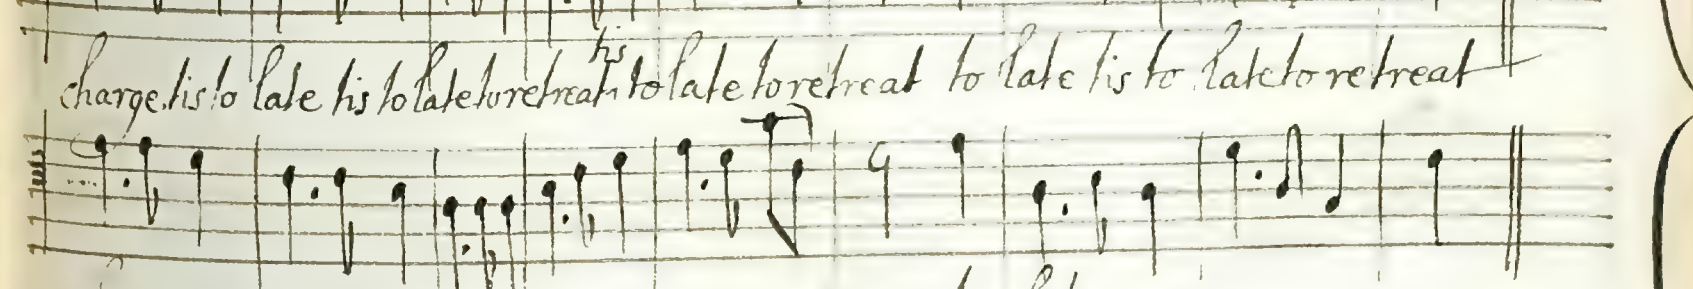 tis
charge tis to late tis to late to retreat to late to retreat to late tis to late to retreat